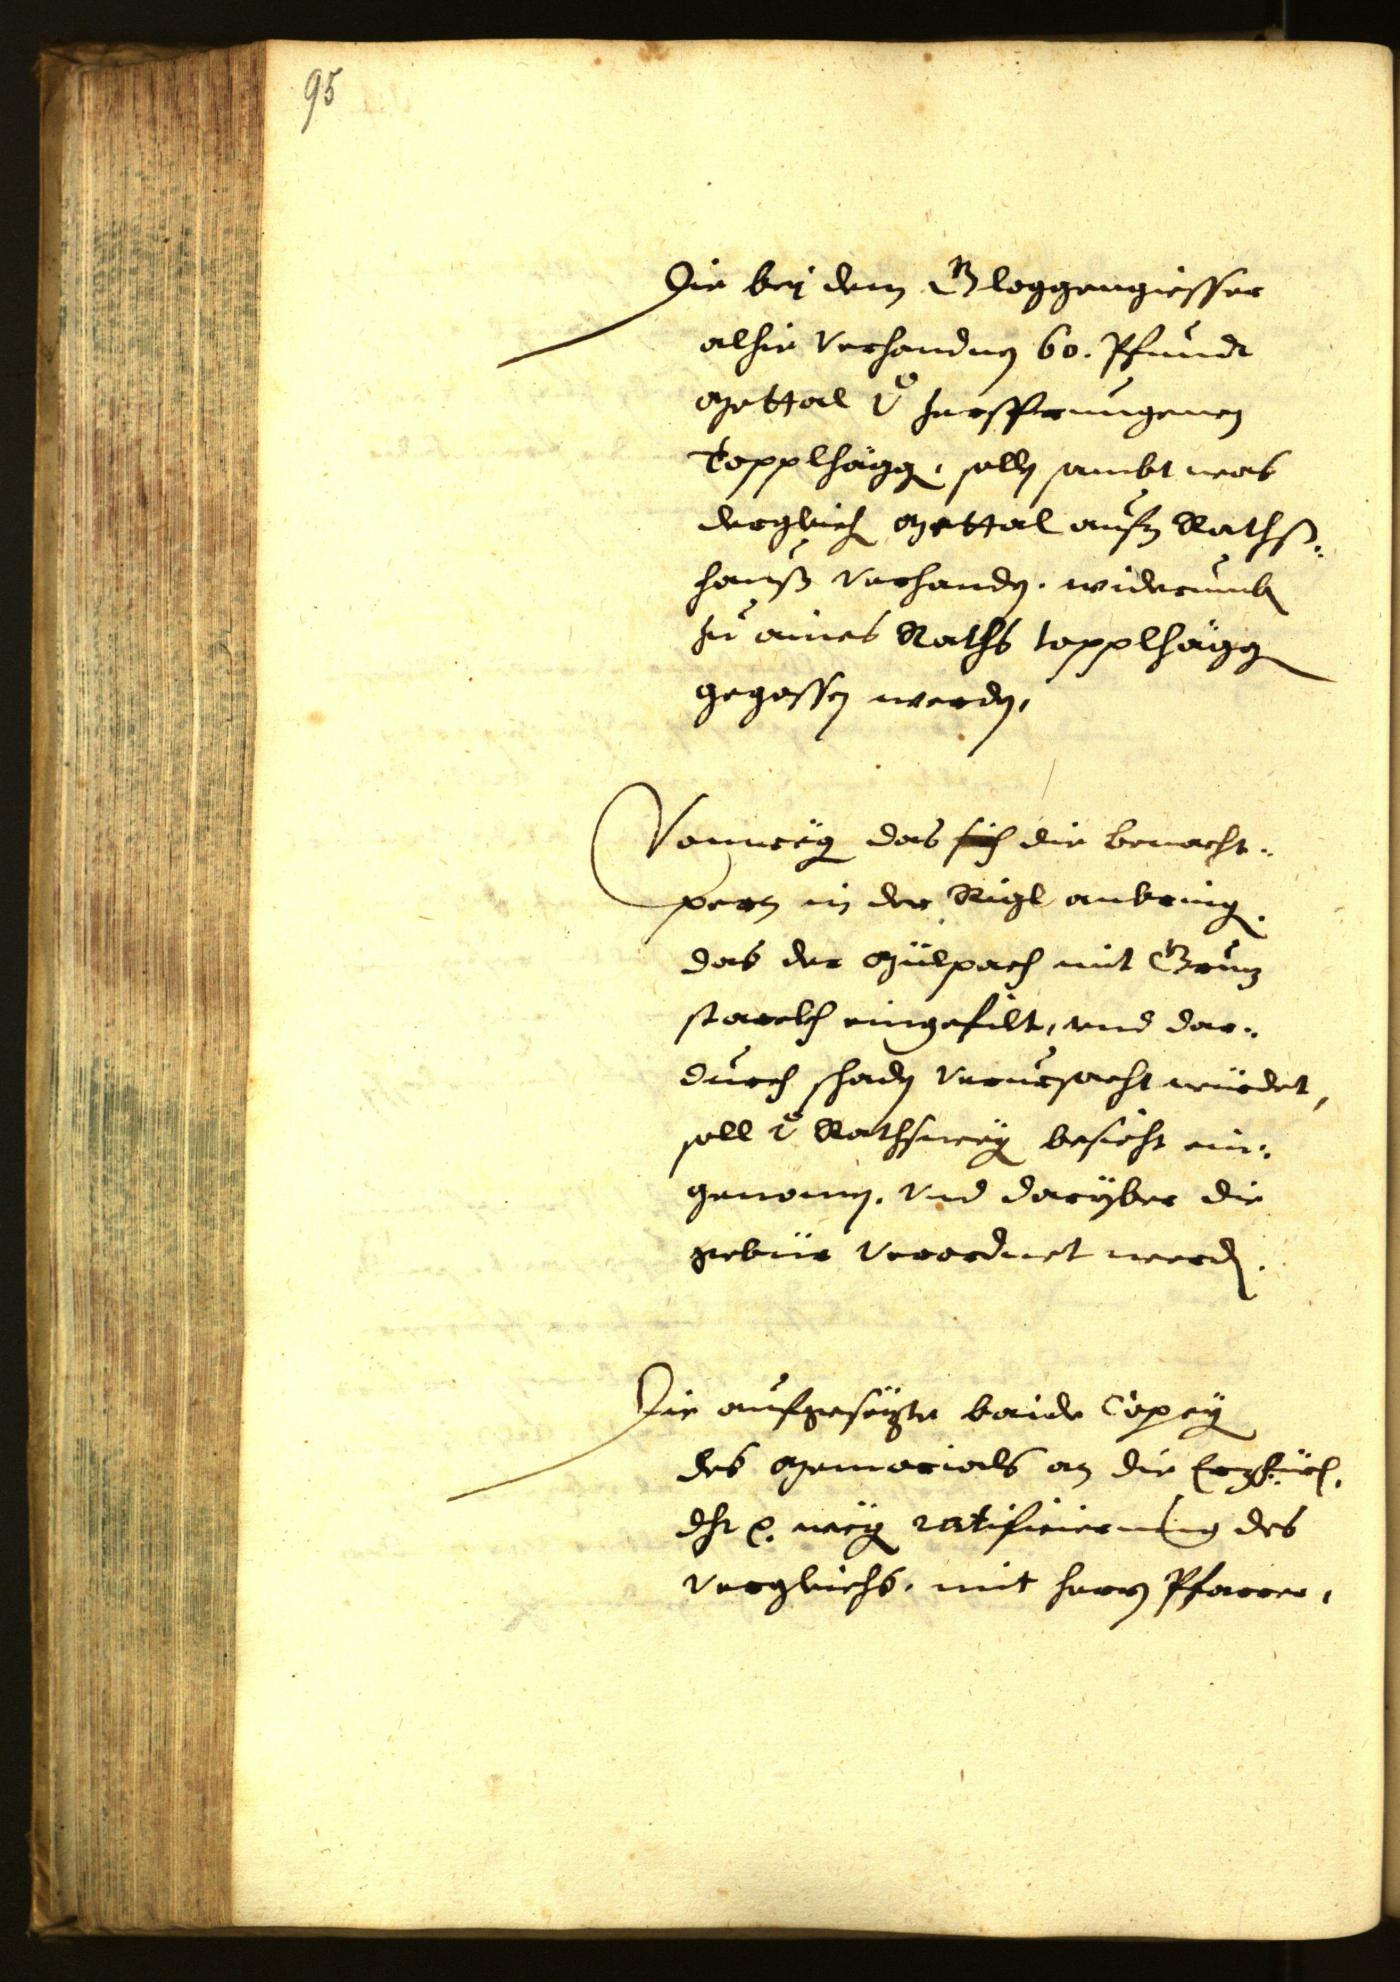 95
Die bej dem Gloggengiesser
alhie verhandnen 60. Pfundt
Mettal der zersprungenen
Topplhägg, sollen sambt was
dergleich Mettal aufm Raths-
hauß verhanden. widerumb
zu aines Raths topplhägg
gegossen werden,
Vonweg das die benacht-
pern in der Rigl anbring.
das der Mülpach mit Grun
starckh eingefilt, und dar-
durch schaden verursacht würdet,
soll der Rathsweg besicht ein-
genomen. Und darÿber die
gebür verordnet werden.
Die aufgesezte baide Copeÿ
des Memorials an die
dht p. weg ratificierung des
vergleichs. mit herrn Pfarrer,